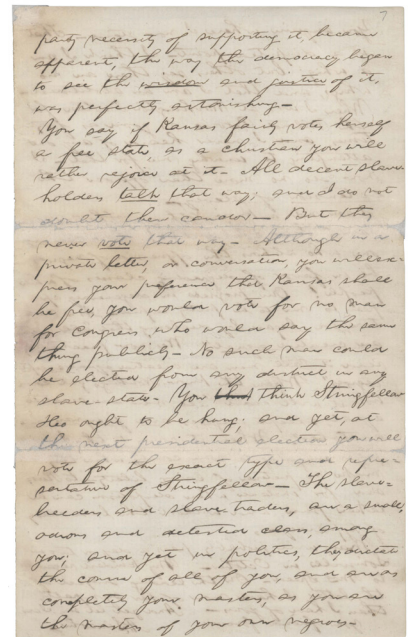 7
party necessity of supporting it, became
apparent, the way the democracy began
to see the wisdom and justice of it,
was perfectly astonishing—
You say if Kansas fairly votes herself
a free state, as a christian you will
rather rejoice at it— All decent slave-
holders talk that way; and I do not
doubt their candor— But they
never vote that way— Although in a
private letter, or conversation, you will ex-
press your preference that Kansas shall
be free, you would vote for no man
for Congress who would say the same
thing publicly— No such man could
be elected from any district in any
slave-state— You think Stringfellow
& Co ought to be hung; and yet, at
the next presidential election you will
vote for the exact type and repre-
sentative of Stringfellow— The slave-
breeders and slave-traders, are a small,
odious and detested class, among
you; and yet in politics, they dictate
the course of all of you, and are as
completely your masters, as you are
the masters of your own negroes—